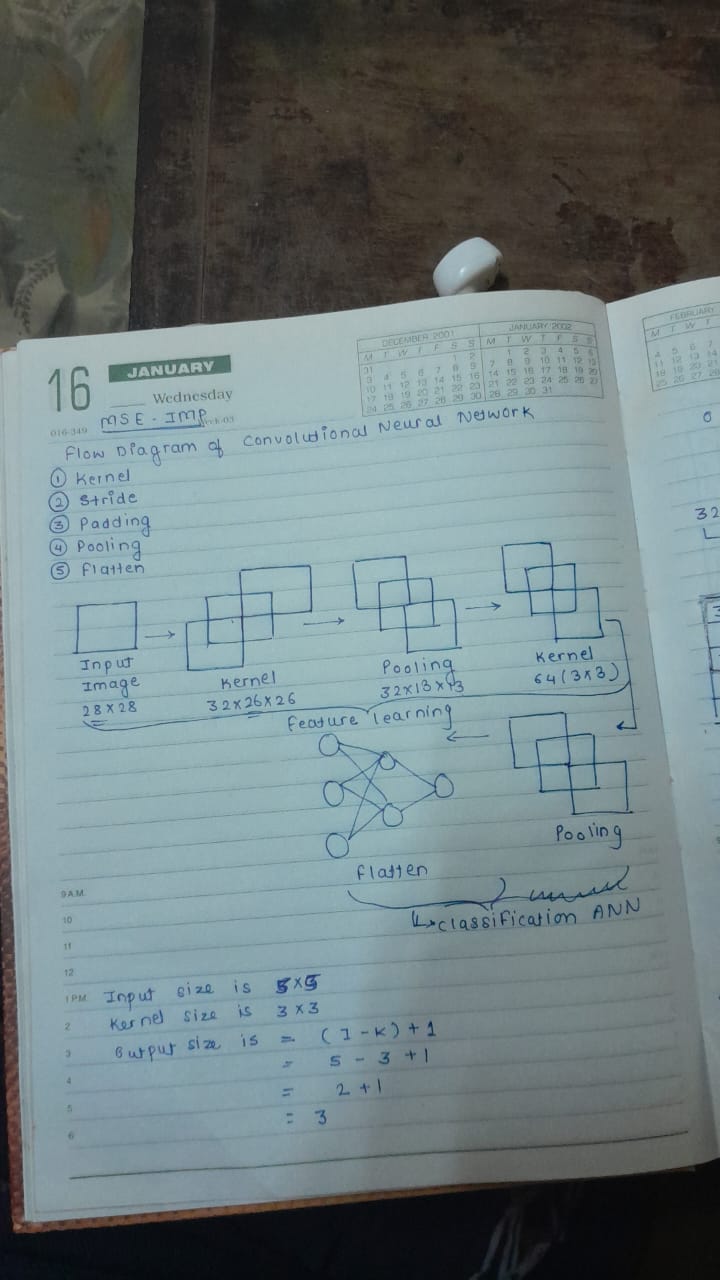 16
JANUARY
Wednesday
016-349
MSE - IMP
DECEMBER 2001
M T W T F S S
31 1 2
3 4 5 6 7 8 9
10 11 12 13 14 15 16
17 18 19 20 21 22 23
24 25 26 27 28 29 30
JANUARY 2002
M T W T F S S
1 2 3 4 5 6
7 8 9 10 11 12 13
14 15 16 17 18 19 20
21 22 23 24 25 26 27
28 29 30 31
FEBRUARY
M T W T
Flow Diagram of Convolutional Neural Network
① Kernel
② Stride
③ Padding
④ Pooling
⑤ Flatten
Input
Image
28 x 28
Kernel
32 x 26 x 26
Pooling
32 x 13 x 13
Kernel
64 (3 x 3)
Feature learning
Pooling
Flatten
↳ classification ANN
9 AM
10
11
12
1 PM
2
3
4
5
6
Input size is 5 x 5
Kernel size is 3 x 3
Output size is = (I - K) + 1
= 5 - 3 + 1
= 2 + 1
= 3
32